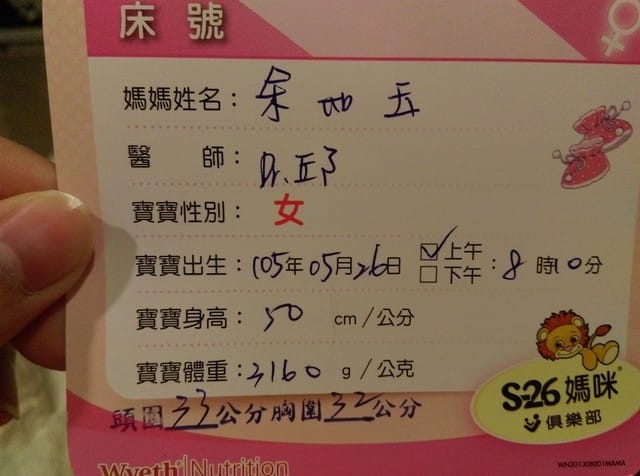 床號
媽媽姓名：
醫 師：Dr.邱
寶寶性別：女
寶寶出生：105年05月26日 ☑上午 □下午：8時10分
寶寶身高：50 cm/公分
寶寶體重：3160 g/公克
頭圍33公分胸圍32公分
S-26 媽咪
俱樂部
Wyeth Nutrition
WN201308001MAMA